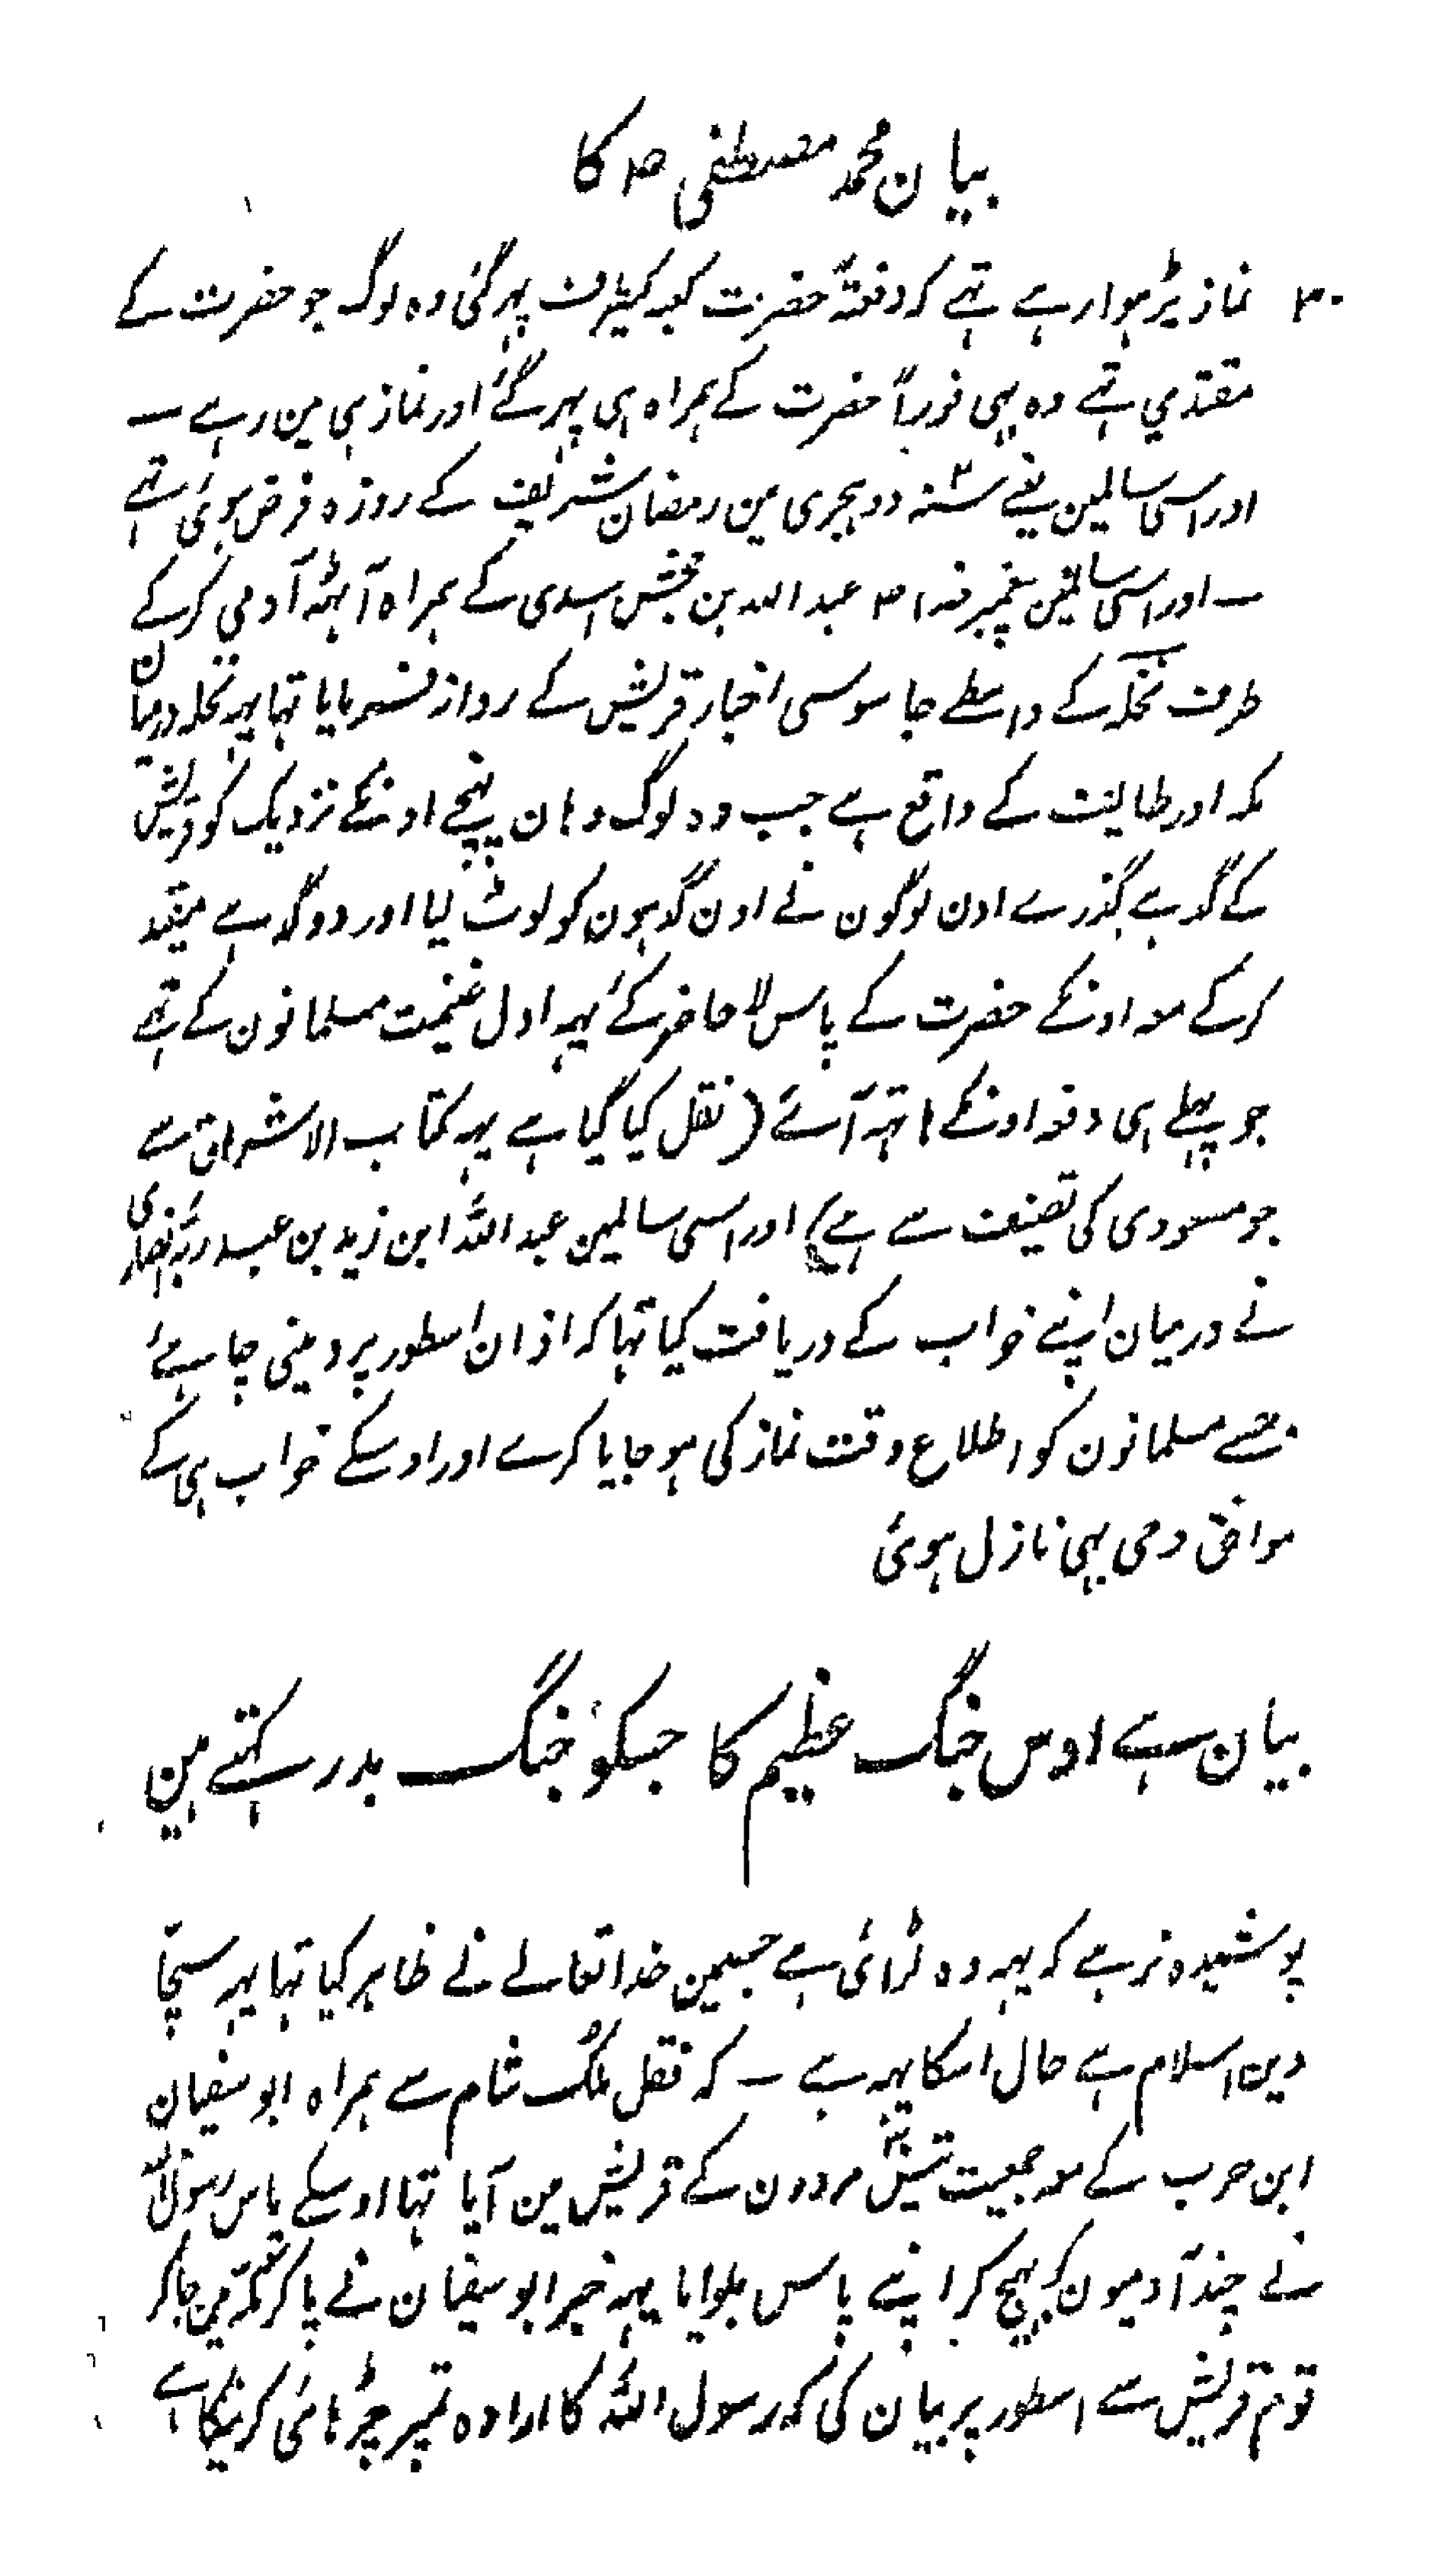 بیان محمد مصطفی ص کا
۳۰ نماز پڑہوا رہے تہے کہ دفعتہً حضرت کعبہ کیطرف پہر گئی وہ لوگ جو حضرت کے
مقتدي تہے وہ بہی فوراً حضرت کے ہمراہ ہی پہر گئے اور نماز ہی مین رہے ــ
اور اسی سالمین یعنے سنہ ۲ دو ہجری مین رمضان شریف کے روزہ فرض ہوئی تہے
ــ اور اسی سالمین پیغمبر خدا ص عبد اللہ بن جحش اسدی کے ہمراہ آٹہہ آدمي کر کے
طرف نخلہ کے واسطے جاسوسی اخبار قریش کے روانہ فرمایا تہا یہہ نخلہ درمیان
مکہ اور طایف کے واقع ہے جب وہ لوگ وہان پہنچے اونکے نزدیک کو قریش
کے گدہے گذرے اون لوگون نے اون گدہون کو لوٹ لیا اور دو گدہے مقید
کر کے معہ اونکے حضرت کے پاس لا حاضر کئے یہہ اول غنیمت مسلمانون کے تہے
جو پہلے ہی دفعہ اونکے ہاتہہ آئے (نقل کیا گیا ہے یہہ کتاب الاشراق سے
جو مسعودی کی تصنیف سے ہے) اور اسی سالمین عبد اللہ ابن زید بن عبد ربہ انصاری
نے درمیان اپنے خواب کے دریافت کیا تہا کہ اذان اسطور پر دینی چاہئے
جسے مسلمانون کو اطلاع وقت نماز کی ہو جایا کرے اور اوسکے خواب ہی کے
موافق وحی بہی نازل ہوئی
بیان ہے اوس جنگ عظیم کا جسکو جنگ بدر کہتے ہین
پوشیدہ نرہے کہ یہہ وہ لڑائی ہے جسمین خدا تعالے نے ظاہر کیا تہا یہہ سچّا
دین اسلام ہے حال اسکا یہہ ہے ــ کہ نقل ملک شام سے ہمراہ ابو سفیان
ابن حرب کے معہ جمعیت تیس مردون کے قریش مین آیا تہا اوسکے پاس رسول اللہ
نے چند آدمیون کو بہیج کر اپنے پاس بلوایا یہہ خبر ابو سفیان نے پا کر مکہ مین جا کر
قوم قریش سے اسطور پر بیان کی کہ رسول اللہ کا ارادہ تمپر چڑہائی کرنیکا ہے